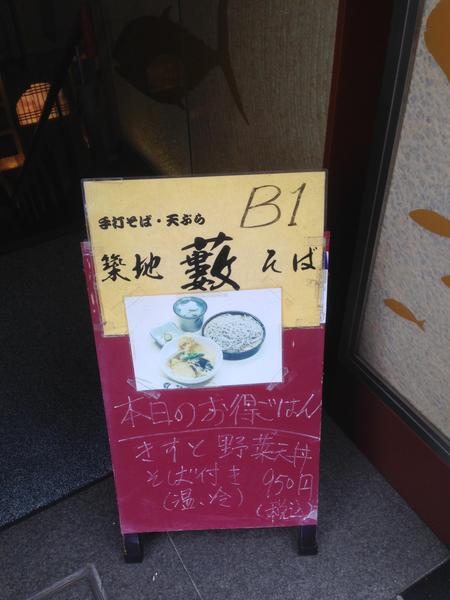 B1
手打そば・天ぷら
築地 藪 そば
本日のお得ごはん
きすと野菜天丼
そば付き 950円
(温、冷) (税込)